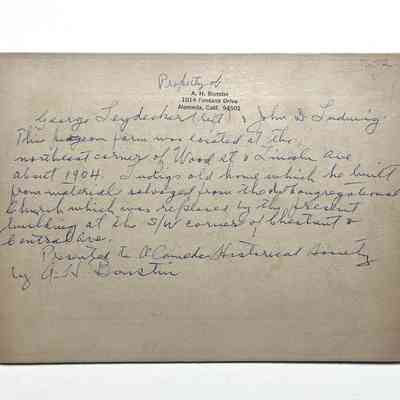 Property of
A. H. Bunstin
1014 Fontana Drive
Alameda, Calif. 94501
George Leydecker (left) & John D. Ludwig.
This pigeon farm was located at the
northeast corner of Wood st & Lincoln Ave
about 1904. Ludwigs old home which he built
from material salvaged from the old Congregational
Church which was replaced by the present
building at the S/W corner of Chestnut &
Central Ave.
Presented to Alameda Historical Society
by A. H.